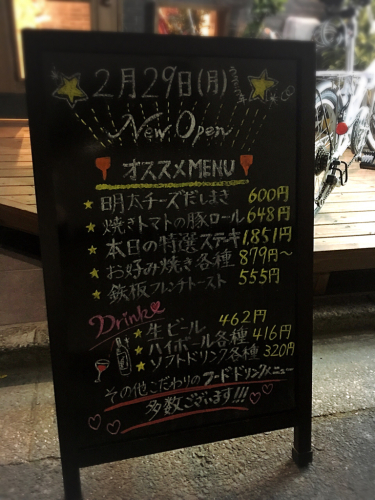 2月29日(月)
New Open
オススメMENU
★明太チーズだしまき 600円
★焼きトマトの豚ロール 648円
★本日の特選ステーキ 1,851円
★お好み焼き各種 879円～
★鉄板フレンチトースト 555円
Drink
★生ビール 462円
★ハイボール各種 416円
★ソフトドリンク各種 320円
その他こだわりのフードドリンクメニュー
多数ございます!!!